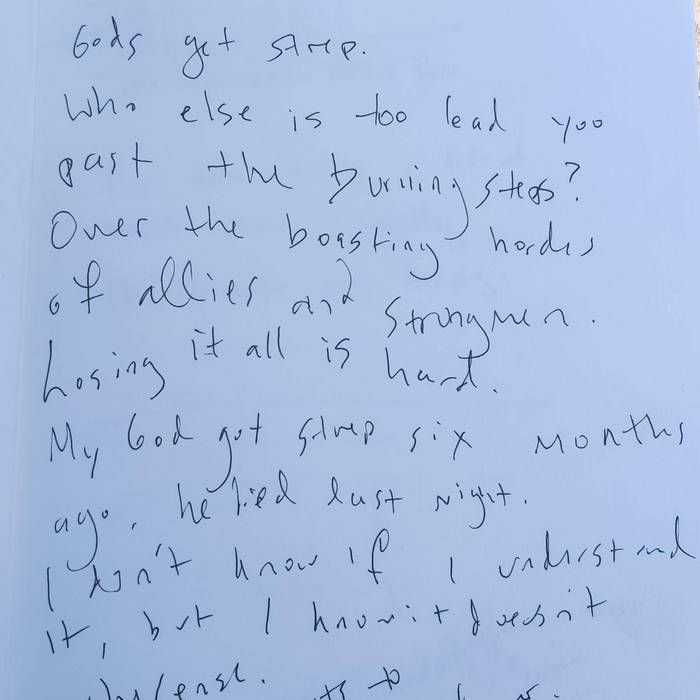 Gods get strep.
Who else is too lead you
past the burning steps?
Over the boasting hordes
of allies and strongmen.
Losing it all is hard.
My God got strep six months
ago, he died last night.
I don't know if I understand
it, but I know it doesn't
sense.
to